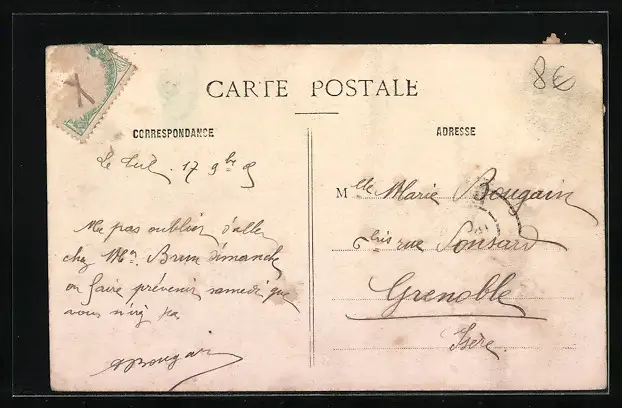 8€
CARTE POSTALE
CORRESPONDANCE
ADRESSE
Le 17 9bre
Mlle Marie Bougain
6 bis rue Ponsard
Grenoble
Isère
Ne pas oublier d'aller
chez Mr Brun dimanche
ou faire prévenir samedi que
vous n'irez pas
Bougain